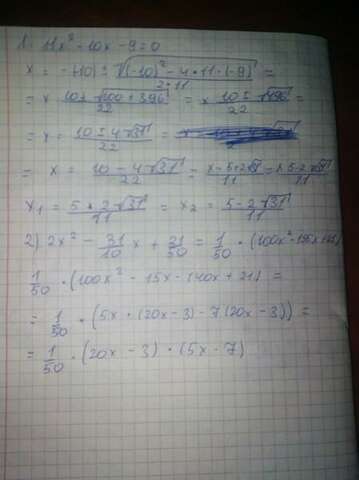 1. 11x² - 10x - 9 = 0
x = -(-10) ± √(-10)² - 4·11·(-9) / 2·11 =
= x 10 ± √100 + 396 / 22 = x 10 ± √496 / 22 =
= x = 10 ± 4√31 / 22 =
= x 10 - 4√31 / 22 = x - 5+2√31 / 11 = x 5-2√31 / 11
x₁ = 5 + 2√31 / 11 = x₂ = 5 - 2√31 / 11
2) 2x² - 31/10 x + 21/50 = 1/50 · (100x² - 155x + 21)
1/50 · (100x² - 15x - 140x + 21) =
= 1/50 · (5x · (20x - 3) - 7(20x - 3)) =
= 1/50 · (20x - 3) · (5x - 7)